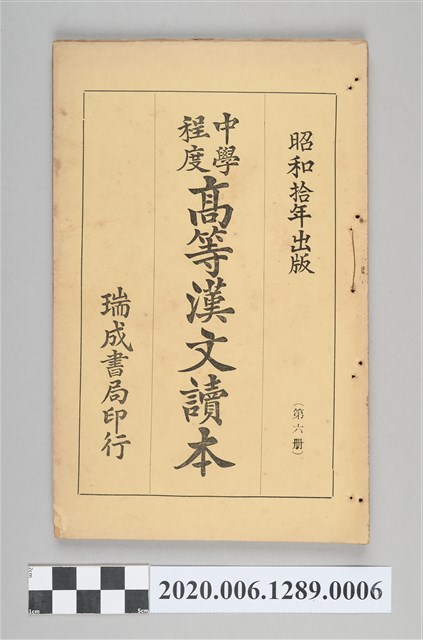 昭和拾年出版
（第六册）
中學
程度
高等漢文讀本
瑞成書局印行
2cm
1cm
5cm
2020.006.1289.0006